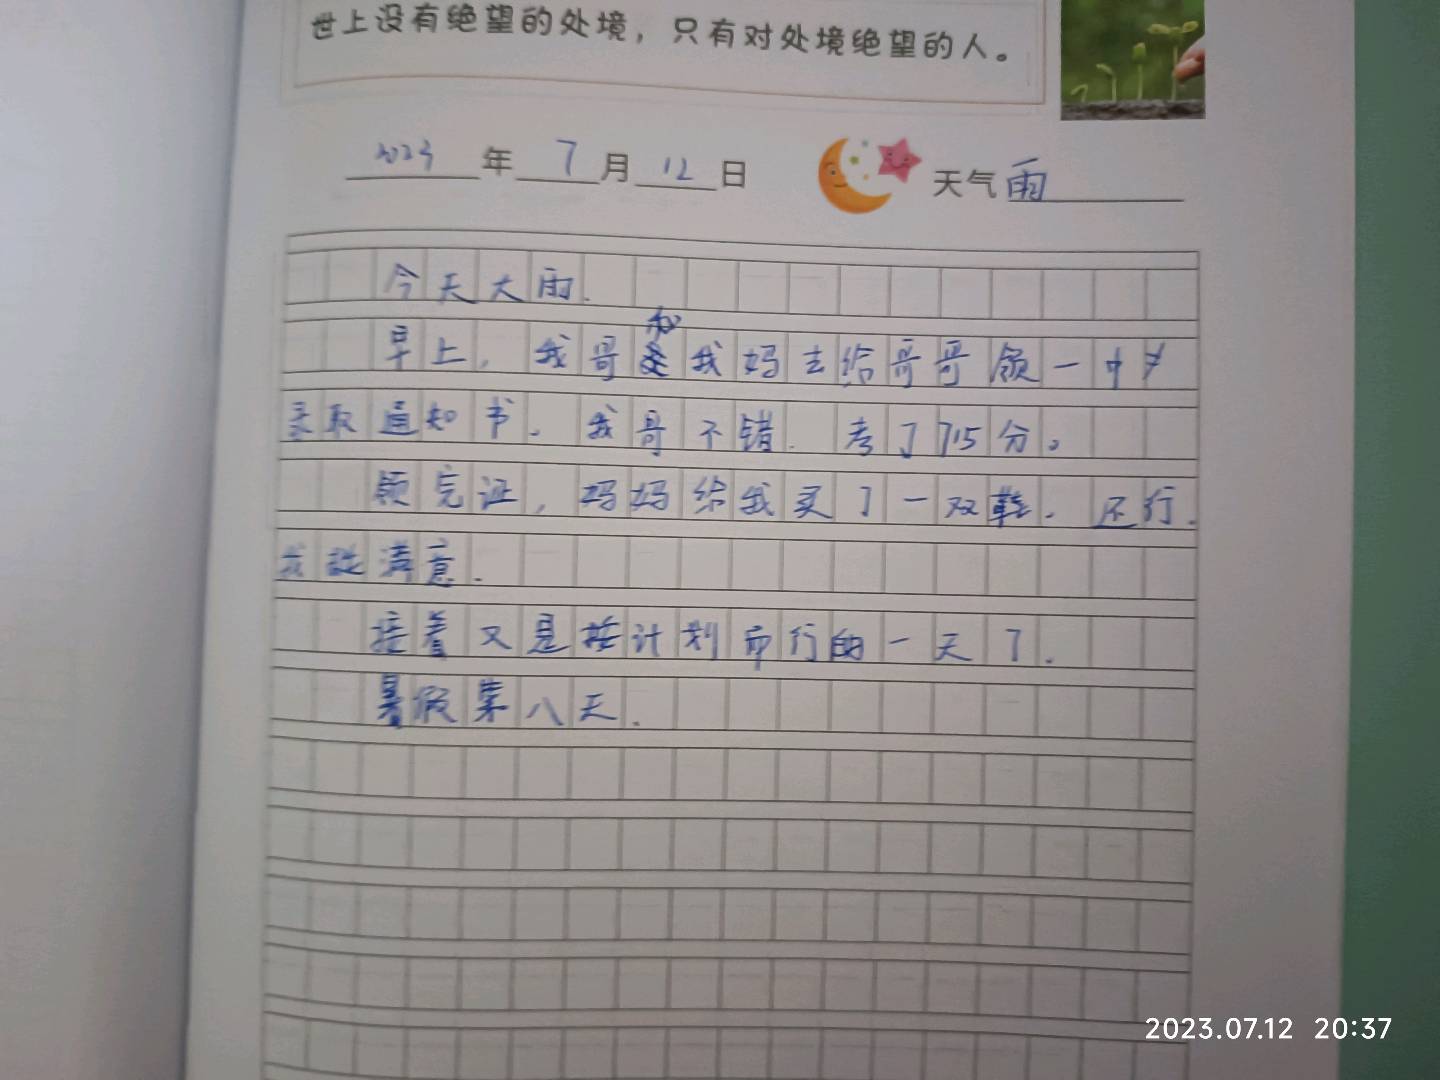 世上没有绝望的处境，只有对处境绝望的人。
2023年7月12日 天气雨
今天大雨.
早上，我哥和我妈去给哥哥领一中
录取通知书。我哥不错.考了715分。
领完证，妈妈给我买了一双鞋.还行.
我挺满意.
接着又是按计划而行的一天了.
暑假第八天.
2023.07.12 20:37